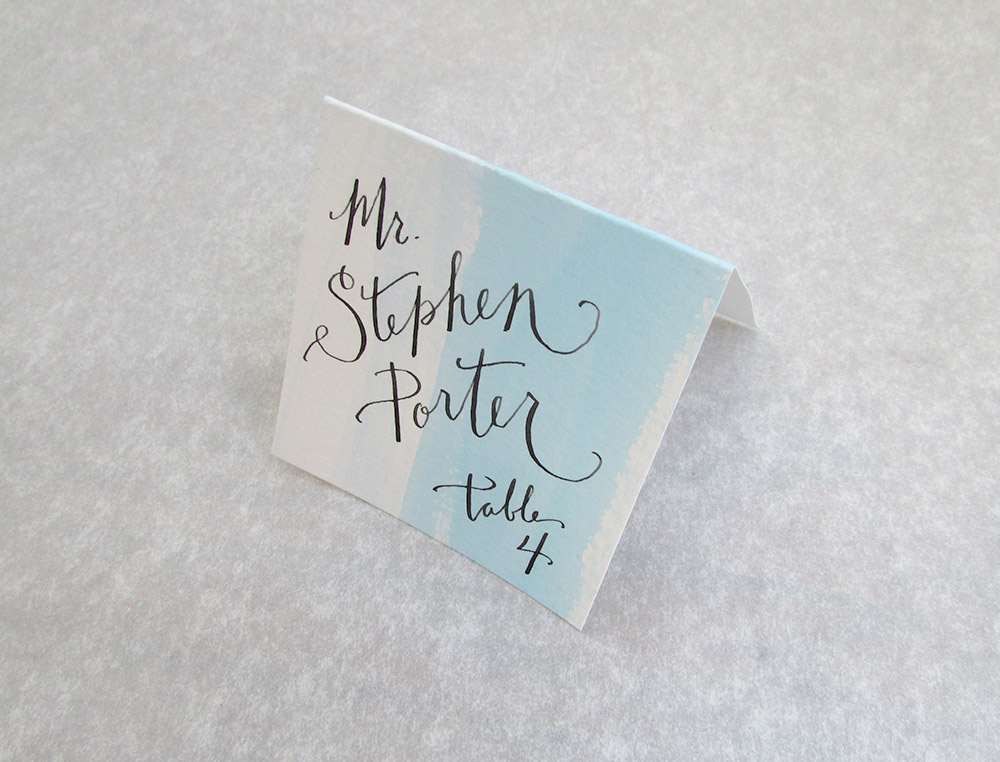 Mr.
Stephen
Porter
table
4